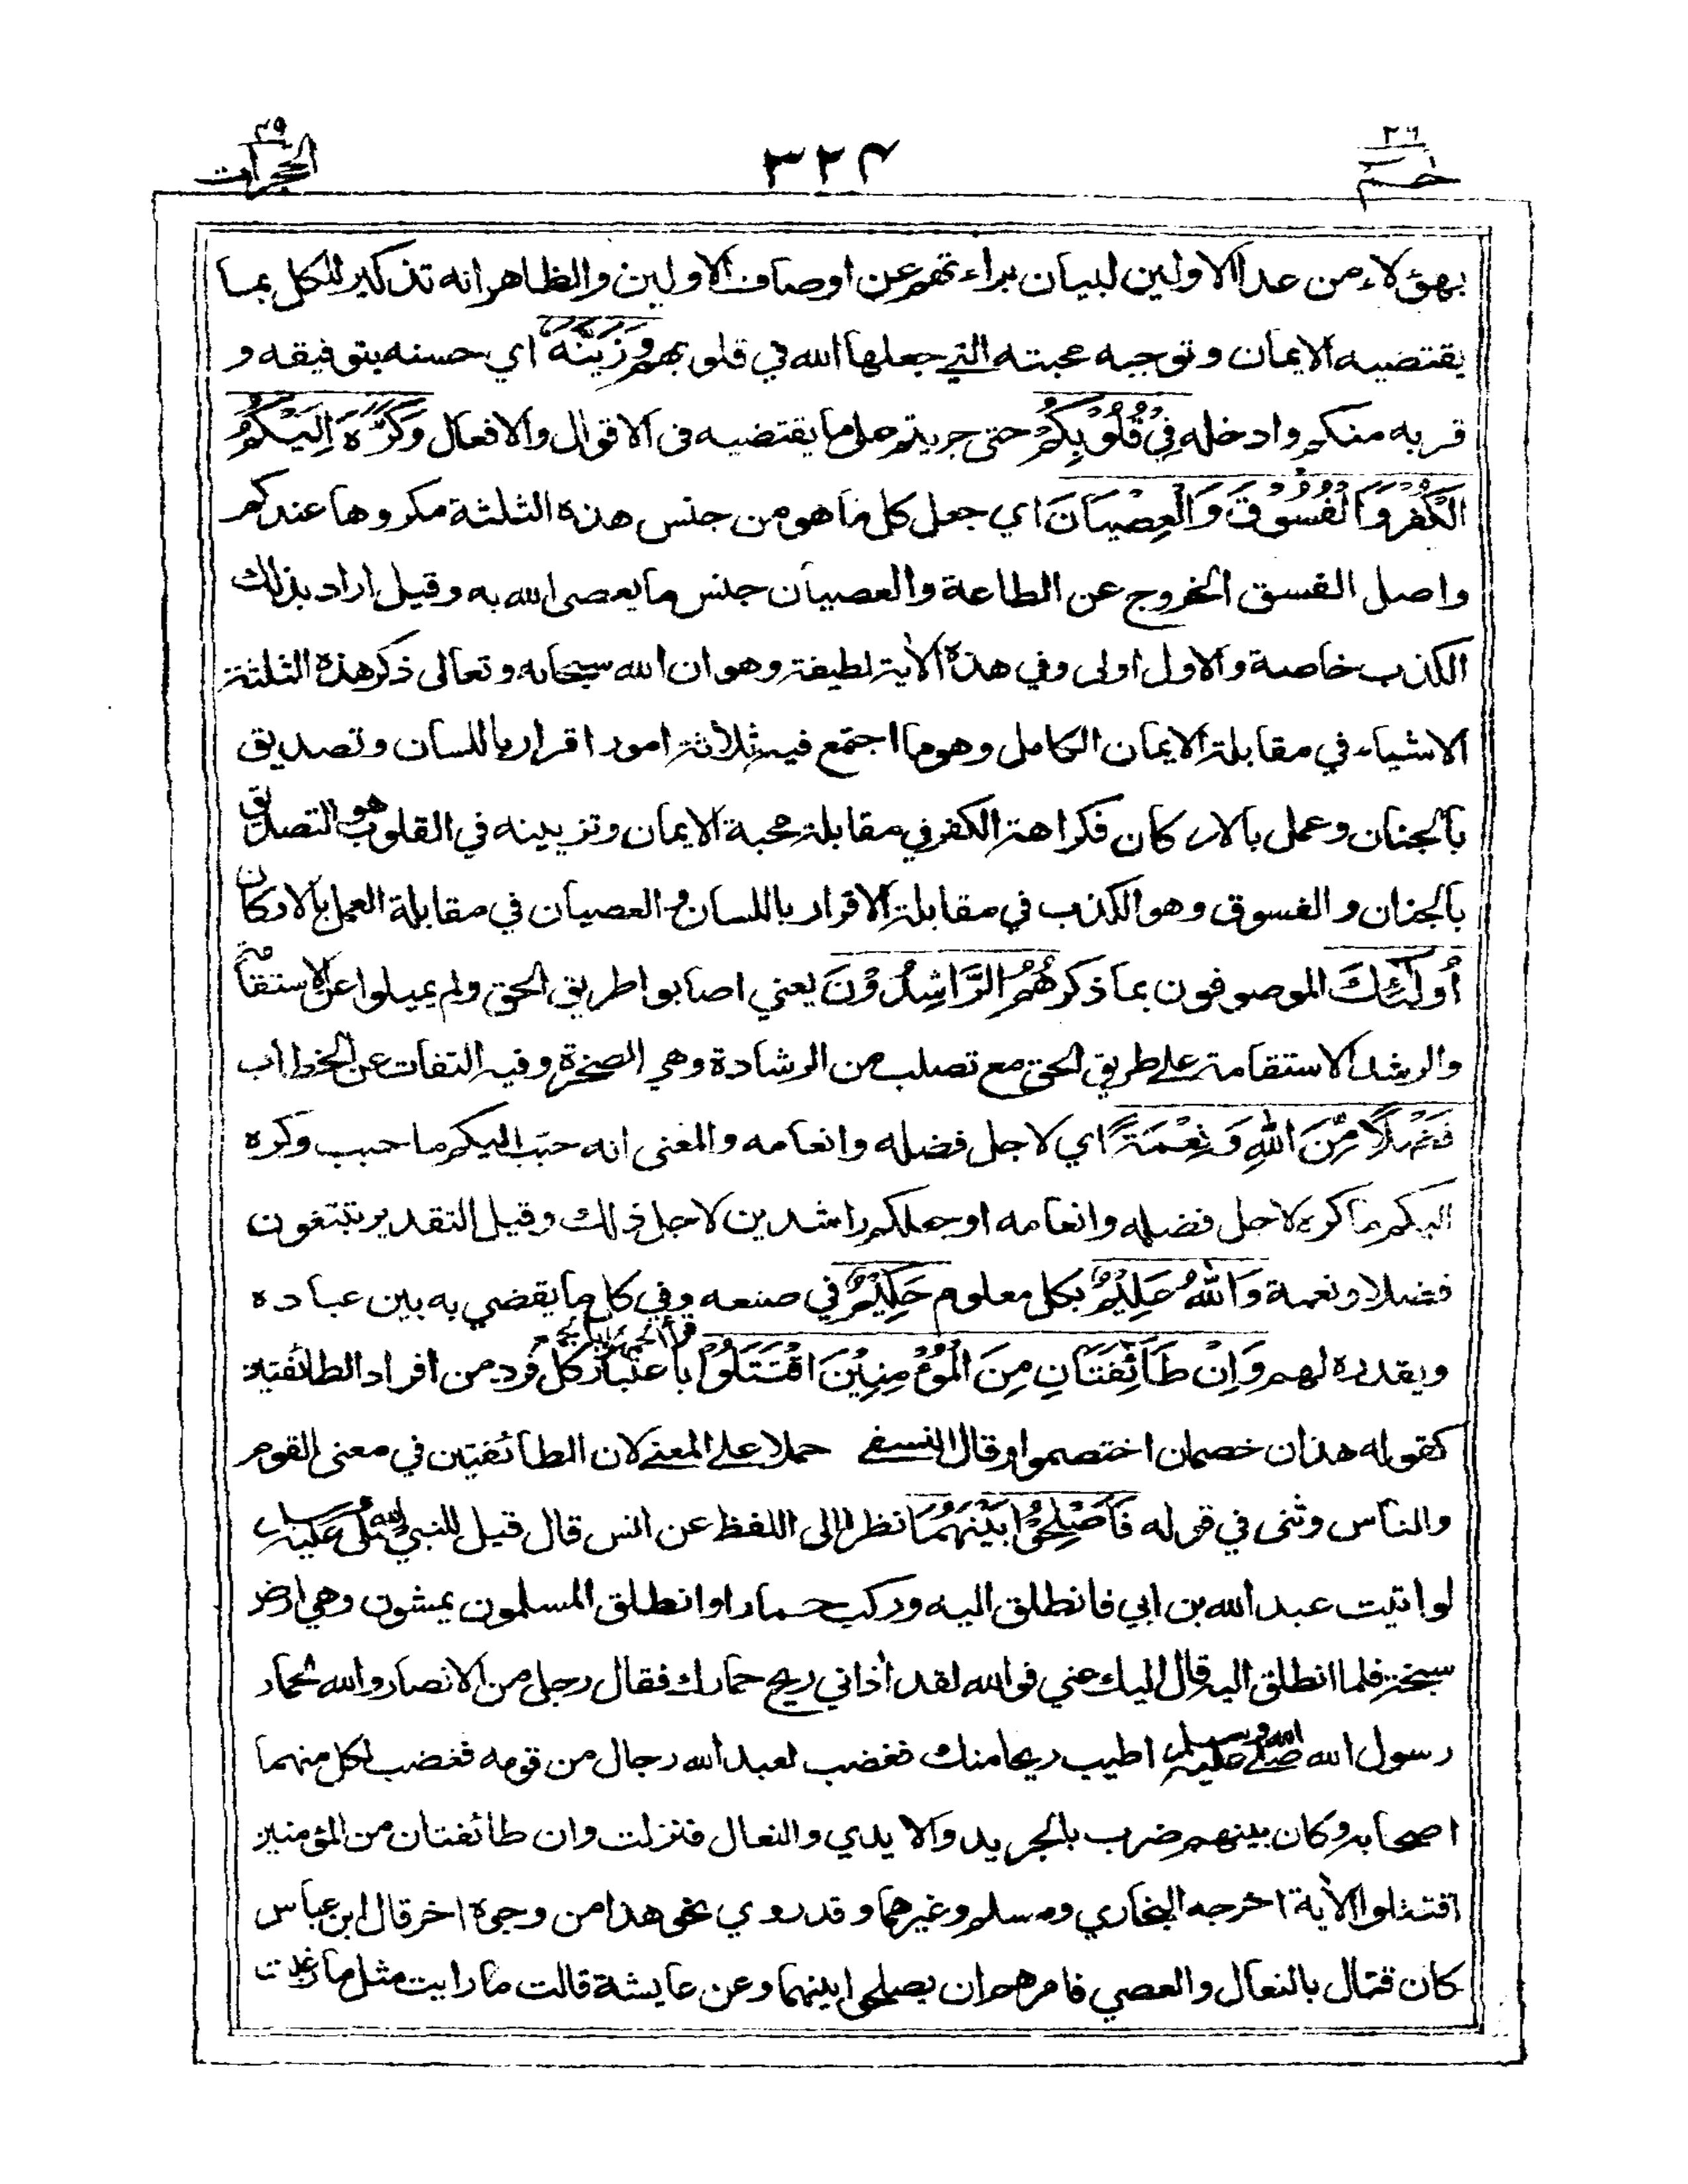 ٢٦
حم
٣٢٤
٤٩
الحجرات
بهؤلاء من عدا الاولين لبيان براءتهم عن اوصاف الاولين والظاهر انه تذكير للكل بما
يقتضيه الايمان وتوجبه محبته التي جعلها الله في قلوبهم وَزَيَّنَهُ اي حسنه بتوفيقه و
قربه منكم وادخله فِي قُلُوْبِكُمْ حتى جريتم على ما يقتضيه في الاقوال والافعال وَكَرَّهَ اِلَيْكُمُ
الْكُفْرَ وَالْفُسُوْقَ وَالْعِصْيَانَ اي جعل كل ما هو من جنس هذه الثلثة مكروها عندكم
واصل الفسق الخروج عن الطاعة والعصيان جنس ما يعصى الله به وقيل اراد بذلك
الكذب خاصة والاول اولى وفي هذه الأية لطيفة وهو ان الله سبحانه وتعالى ذكر هذه الثلثة
الاشياء في مقابلة الايمان الكامل وهو ما اجتمع فيه ثلاثة امور اقرار باللسان وتصديق
بالجنان وعمل بالاركان فكراهة الكفر في مقابلة محبة الايمان وتزيينه في القلوب هو التصديق
بالجنان والفسوق وهو الكذب في مقابلة الاقرار باللسان والعصيان في مقابلة العمل بالاركان
أُولَٰئِكَ الموصوفون بما ذكر هُمُ الرَّاشِدُوْنَ يعني اصابوا طريق الحق ولم يميلوا عن الاستقامة
والرشد الاستقامة على طريق الحق مع تصلب من الرشادة وهي الصخرة وفيه التفات عن الخطاب
فَضْلًا مِّنَ اللهِ وَنِعْمَةً اي لاجل فضله وانعامه والمعنى انه حبّب اليكم ما حبب وكره
اليكم ما كره لاجل فضله وانعامه او جعلكم راشدين لاجل ذلك وقيل التقدير تبتغون
فضلا ونعمة وَاللهُ عَلِيْمٌ بكل معلوم حَكِيْمٌ في صنعه وفي كل ما يقضي به بين عباده
ويقدره لهم وَاِنْ طَائِفَتَانِ مِنَ الْمُؤْمِنِيْنَ اقْتَتَلُوْا باعتبار كل فرد من افراد الطائفتين
كقوله هذان خصمان اختصموا وقال النسفي حملا على المعنى لان الطائفتين في معنى القوم
والناس وثنى في قوله فَاَصْلِحُوْا بَيْنَهُمَا نظرا الى اللفظ عن انس قال قيل للنبي صلى الله عليه وسلم
لو اتيت عبد الله بن ابي فانطلق اليه وركب حمارا وانطلق المسلمون يمشون وهي ارض
سبخة فلما انطلق اليه قال اليك عني فوالله لقد اذاني ريح حمارك فقال رجل من الانصار والله لحمار
رسول الله صلى الله عليه وسلم اطيب ريحا منك فغضب لعبد الله رجال من قومه فغضب لكل منهما
اصحابه وكان بينهم ضرب بالجريد والايدي والنعال فنزلت وان طائفتان من المؤمنين
اقتتلوا الأية اخرجه البخاري ومسلم وغيرهما وقد روي نحو هذا من وجوه اخر قال ابن عباس
كان قتال بالنعال والعصي فامرهم ان يصلحوا بينهما وعن عايشة قالت ما رايت مثل ما رغبت